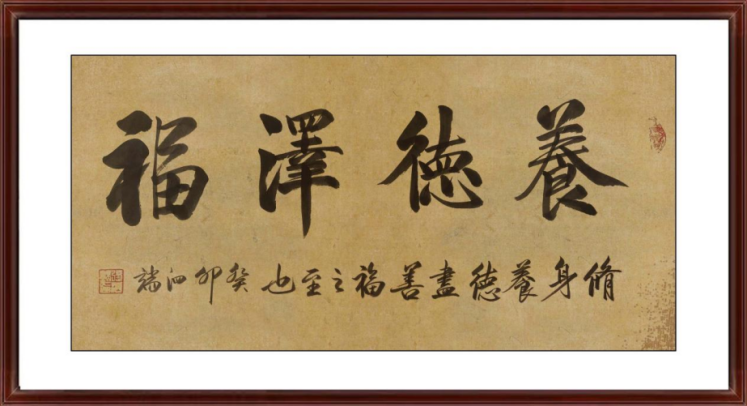 養德澤福
脩身養德盡善福之至也癸卯泗端